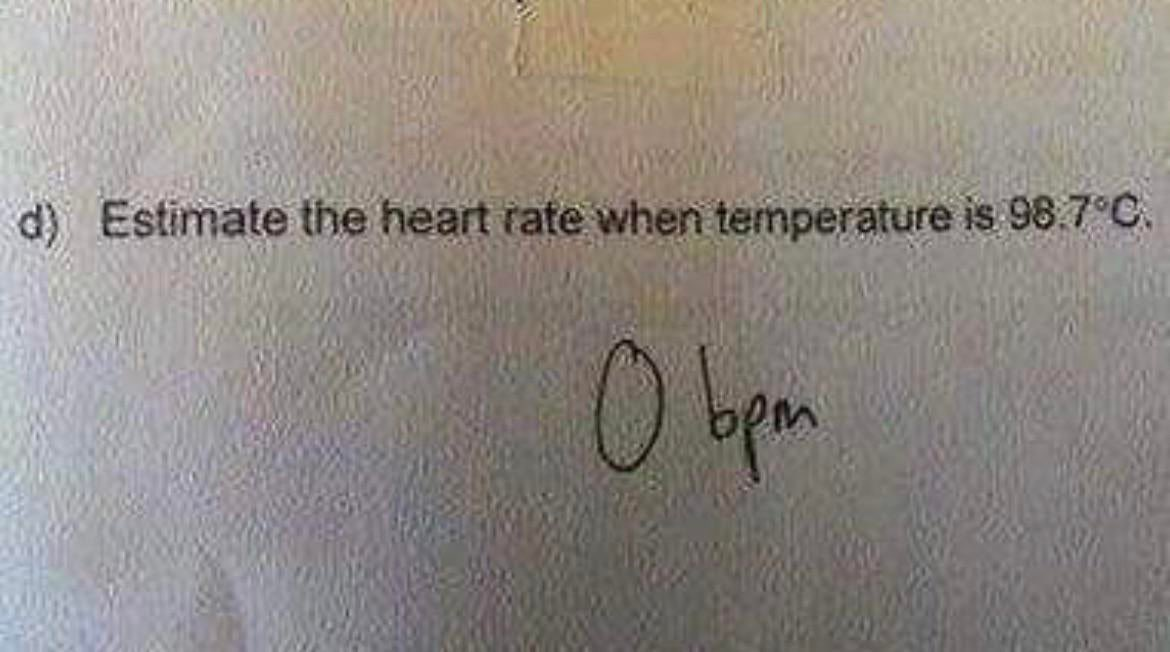 d) Estimate the heart rate when temperature is 98.7°C.
0 bpm